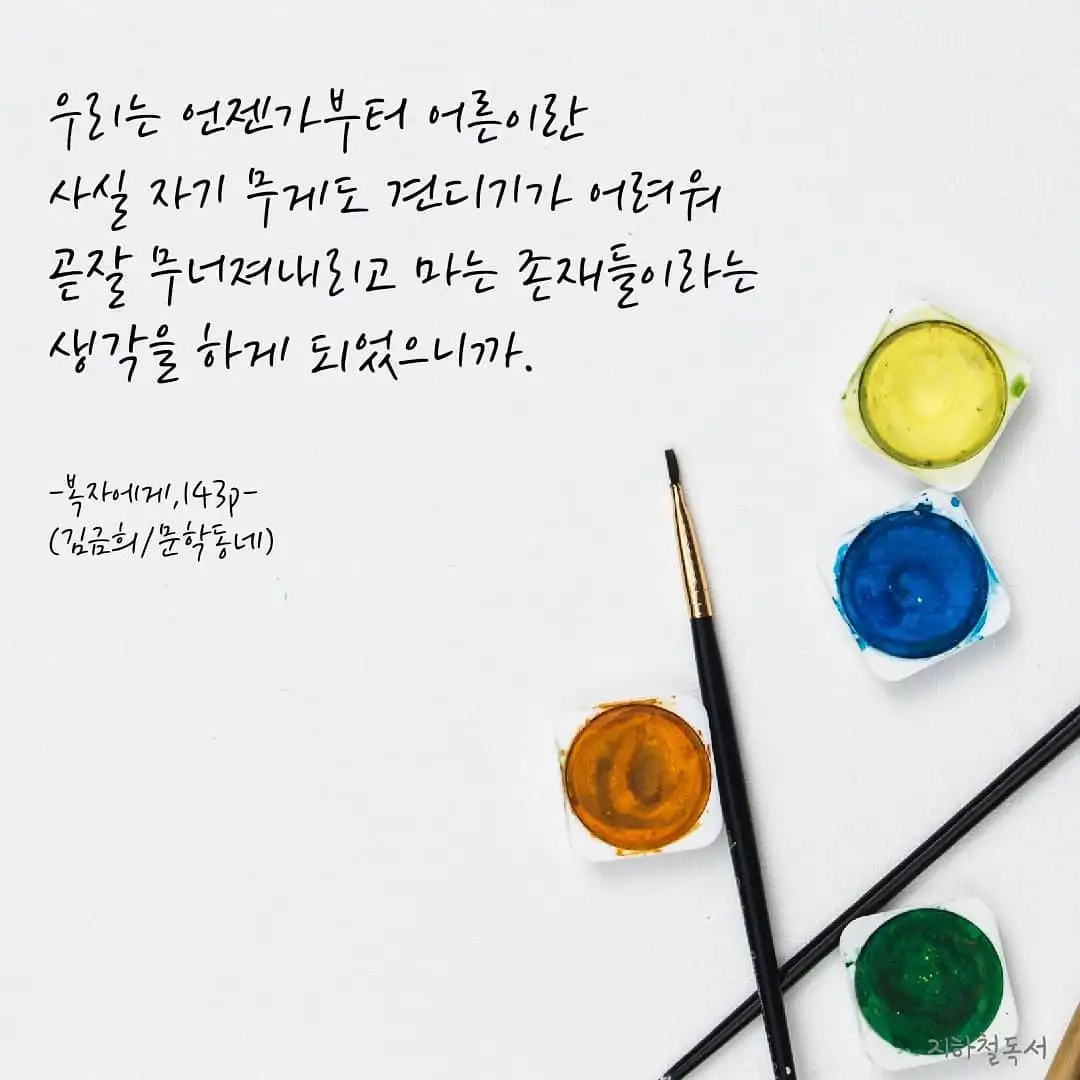 우리는 언젠가부터 어른이란
사실 자기 무게도 견디기가 어려워
곧잘 무너져내리고 마는 존재들이라는
생각을 하게 되었으니까.
-복자에게,143p-
(김금희/문학동네)
지하철독서